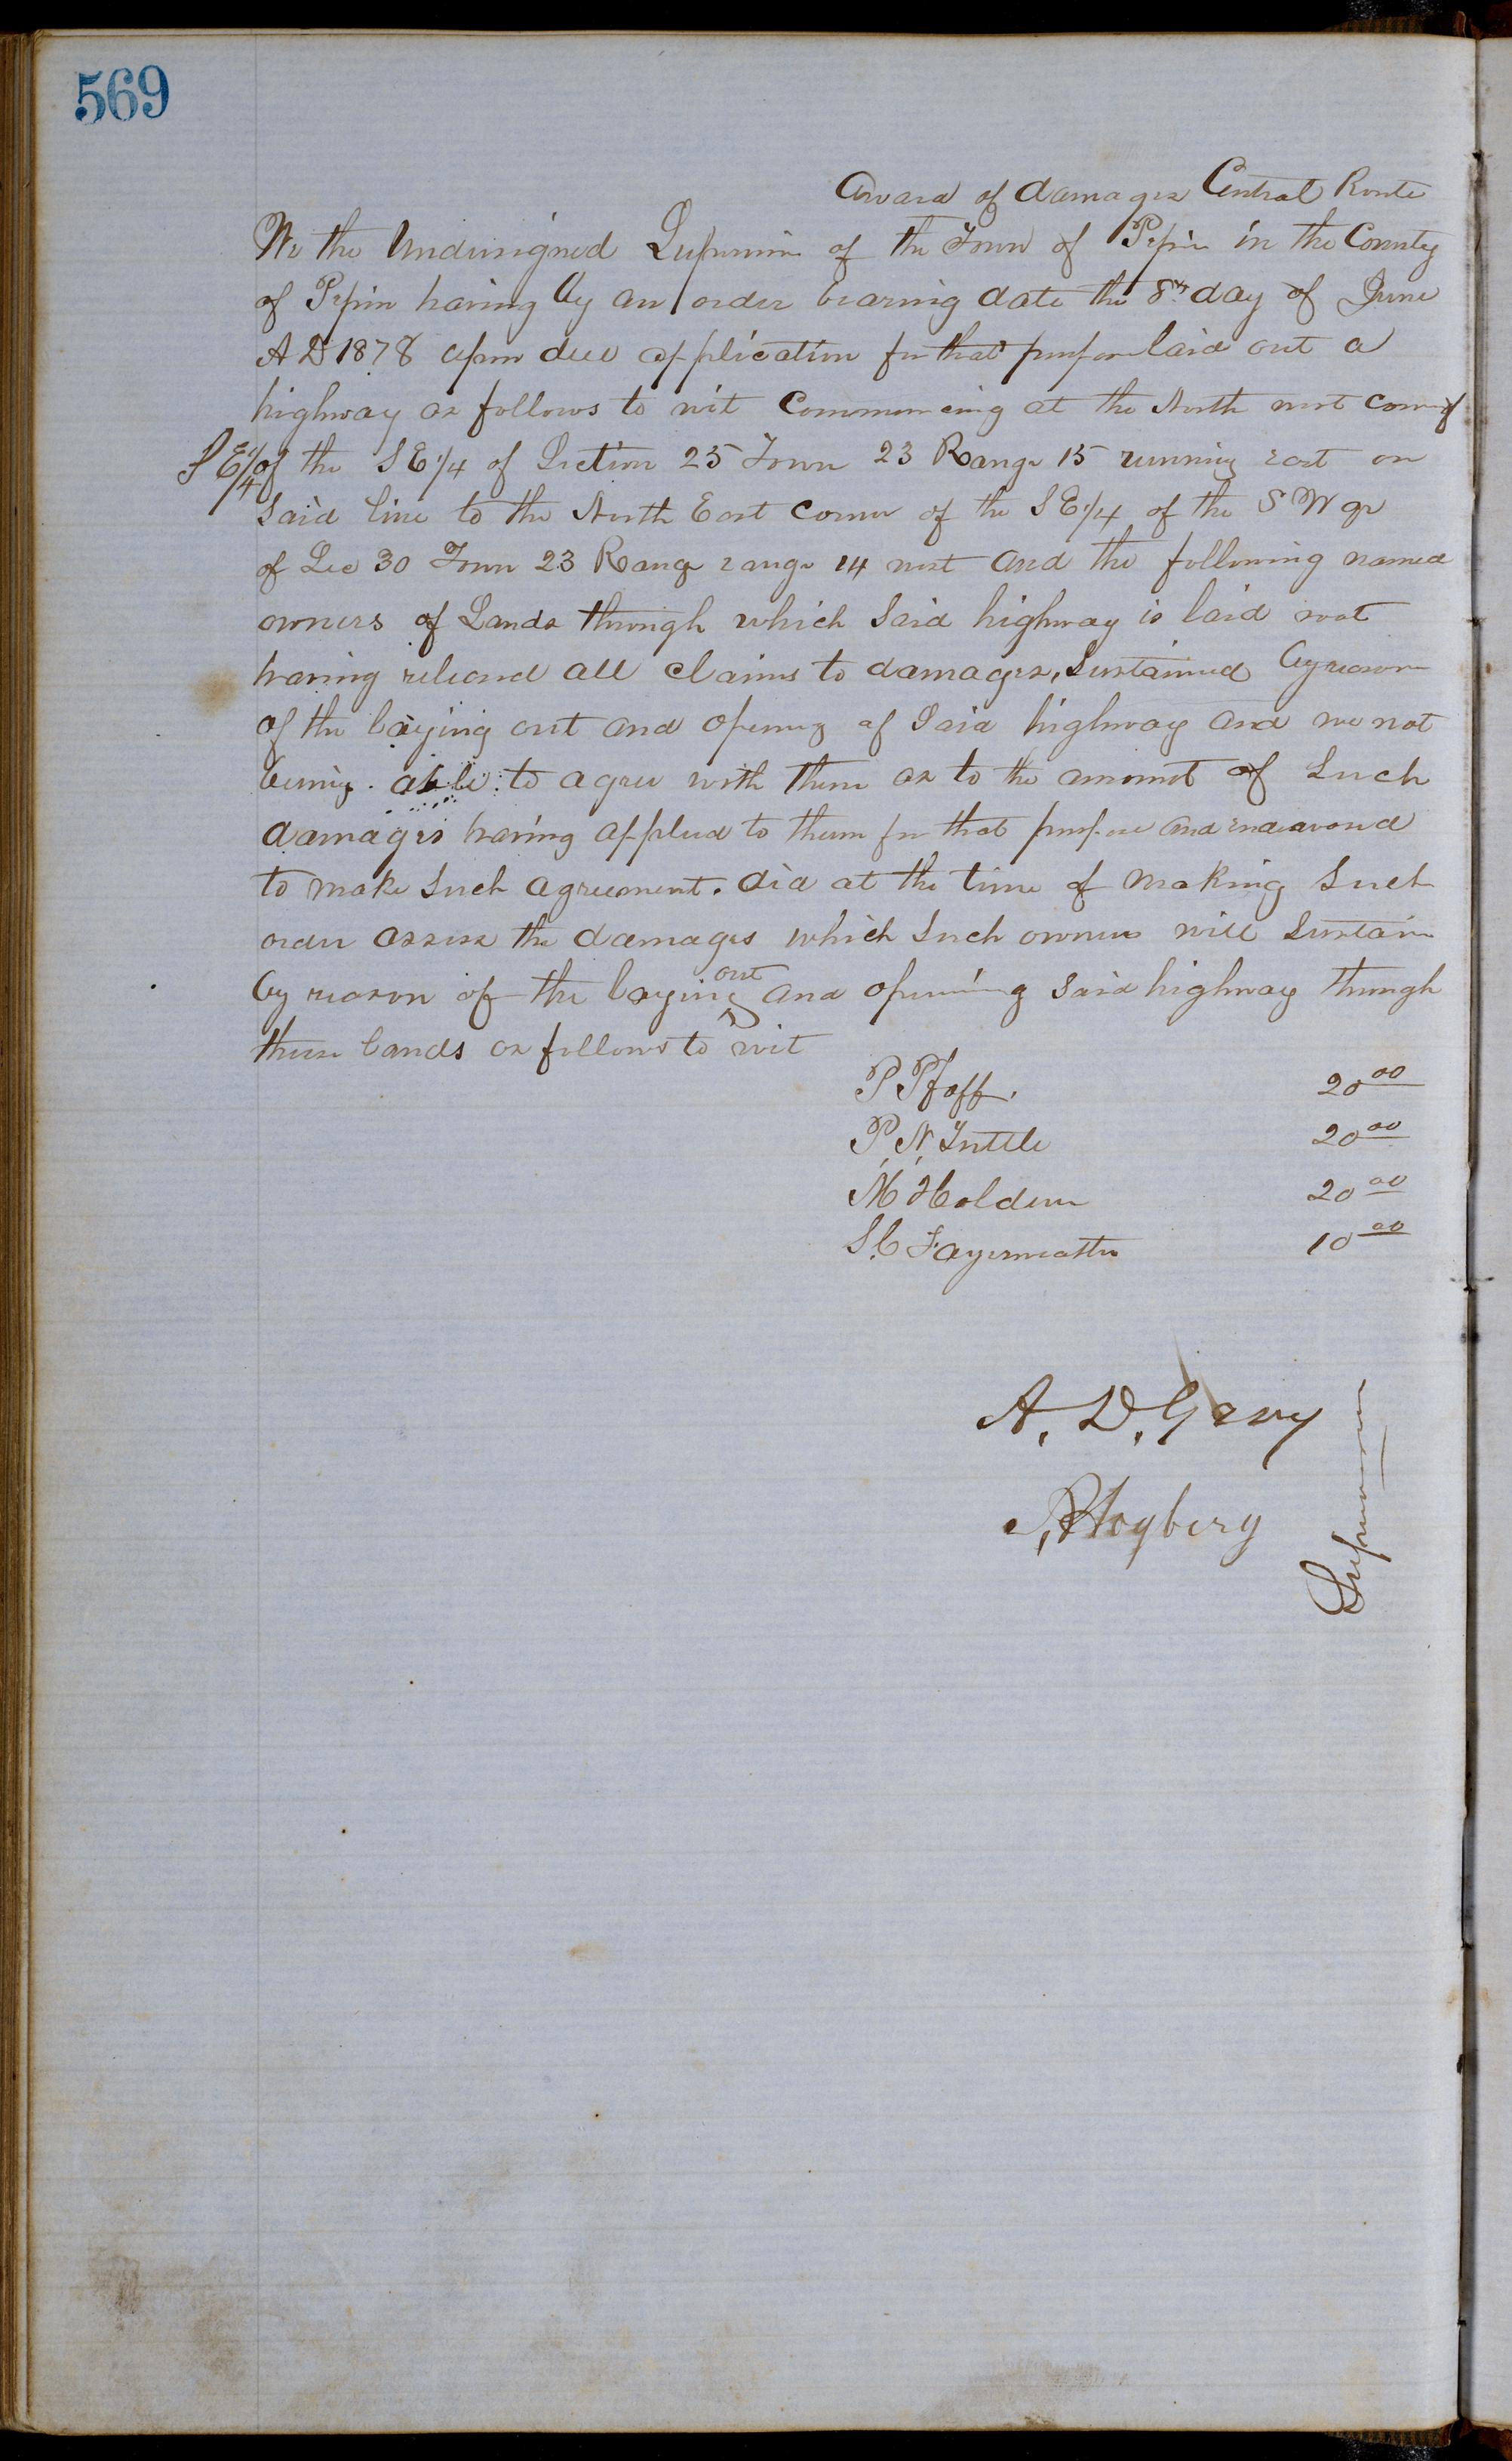 569
Award of damages Central Route
We the Undersigned Supervisors of the Town of Pepin in the County
of Pepin having by an order bearing date the 8th day of June
A D 1878 upon due application for that purpose laid out a
highway as follows to wit Commencing at the North west corner of
S E 1/4 of the S E 1/4 of Section 25 Town 23 Range 15 running east on
Said line to the North East Corner of the S E 1/4 of the S W qr
of Sec 30 Town 23 Range range 14 west and the following named
owners of Lands through which Said highway is laid not
having released all claims to damages, Sustained by reason
of the laying out and opening of Said highway and we not
being able to agree with them as to the amount of Such
damages having applied to them for that purpose and endeavored
to make Such agreement. did at the time of making Such
order assess the damages which Such owners will Sustain
by reason of the laying out and opening Said highway through
these lands as follows to wit
P Pfaff. 20 00
P. N. Tuttle 20 00
M Holden 20 00
S. C Fayerweather 10 00
A. D. Gray
Hogberg
Supervisors